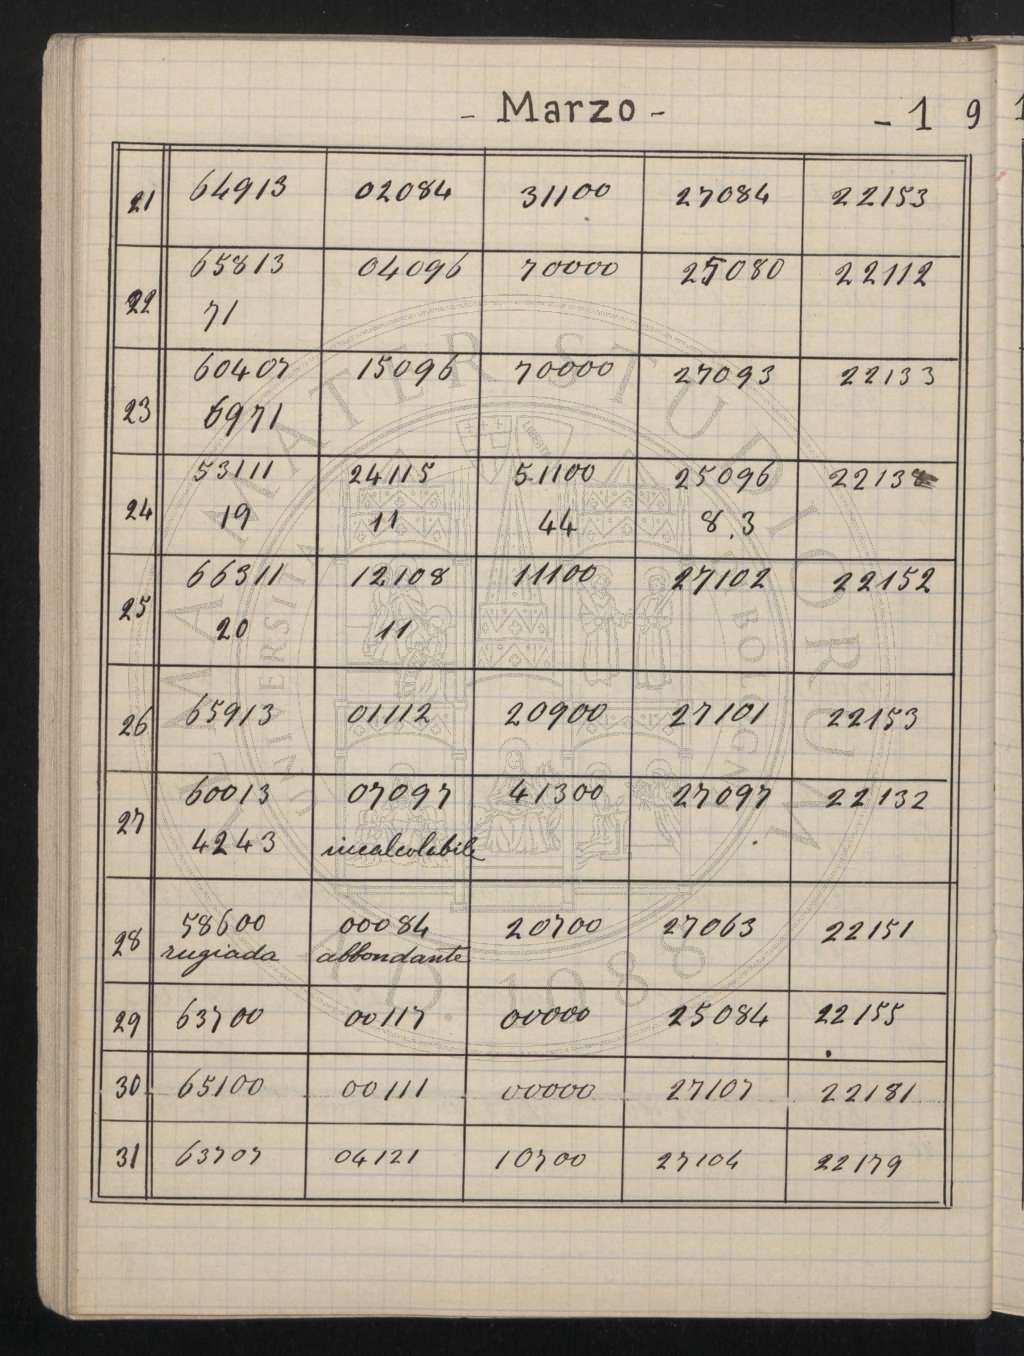 - Marzo -
- 1 9 1
21 64913 02084 31100 27084 22153
22 65813 04096 70000 25080 22112
71
23 60407 15096 70000 27093 22133
6971
24 53111 24115 51100 25096 2213
19 11 44 8.3
25 66311 12108 11100 27102 22152
20 11
26 65913 01112 20900 27101 22153
27 60013 07097 41300 27097 22132
4243 incalcolabile
28 58600 00084 20700 27063 22151
rugiada abbondante
29 63700 00117 00000 25084 22155
30 65100 00111 00000 27107 22181
31 63707 04121 10700 27104 22179
ALMA MATER STUDIORUM
UNIVERSITÀ DI BOLOGNA
A.D. 1088